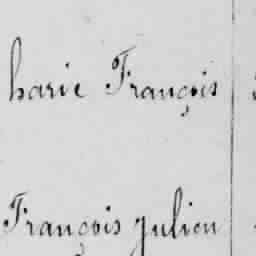 harie François
François julien